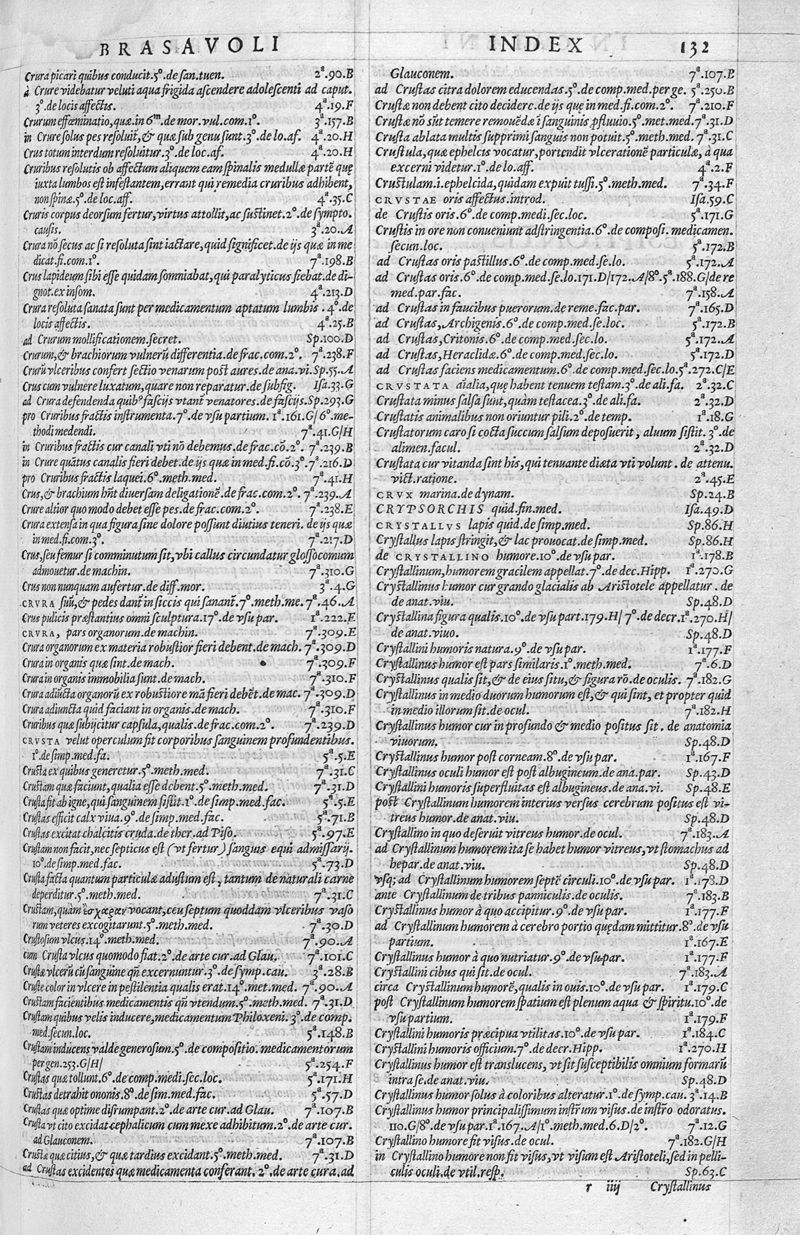 BRASAVOLI INDEX 132
Crura picari quibus conducit.5º.de san.tuen. 2ª.90.B
à Crure videbatur veluti aqua frigida ascendere adolescenti ad caput.
3º.de locis affectis. 4ª.19.F
Crurum effœminatio,quæ.in 6m.de mor.vul.com.1º. 3ª.157.B
in Crure solus pes resoluit̃,& quæ sub genu sunt.3º.de lo.af. 4ª.20.H
Crus totum interdum resoluitur.3º.de loc.af. 4ª.20.H
Cruribus resolutis ob affectum aliquem eam spinalis medullæ partẽ quę
iuxta lumbos est infestantem,errant qui remedia cruribus adhibent,
non spinæ.5º.de loc.aff. 4ª.35.C
Cruris corpus deorsum fertur,virtus attollit,ac sustinet.2º.de sympto.
causis. 3ª.20.A
Crura nõ secus ac si resoluta sint iactare,quid significet.de ijs quæ in me
dicat.fi.com.1º. 7ª.198.B
Crus lapideum sibi esse quidam somniabat,qui paralyticus fiebat.de di-
gnot.ex insom. 4ª.213.D
Crura resoluta sanata sunt per medicamentum aptatum lumbis .4º.de
locis affectis. 4ª.25.B
ad Crurum mollificationem.secret. Sp.100.D
Crurum,& brachiorum vulnerũ differentia.de frac.com.2º. 7ª.238.F
Crurũ vlceribus confert sectio venarum post aures.de ana.vi. Sp.55.A
Crus cum vulnere luxatum,quare non reparatur.de subfig. Isa.33.G
ad Crura defendenda quibº fascijs vtant̃ venatores.de fascijs. Sp.293.G
pro Cruribus fractis instrumenta.7º.de vsu partium.1ª.161.G/6º.me-
thodi medendi. 7ª.41.G/H
in Cruribus fractis cur canali vti nõ debemus.de frac.cõ.2º. 7ª.239.B
in Crure quãtus canalis fieri debet.de ijs quæ in med.fi.cõ.3º.7ª.216.D
pro Cruribus fractis laquei.6º.meth.med. 7ª.41.H
Crus,& brachium hñt diuersam deligationẽ.de frac.com.2º. 7ª.239.A
Crure altior quo modo debet esse pes.de frac.com.2º. 7ª.238.E
Crura extensa in qua figura sine dolore possunt diutius teneri. de ijs quæ
in med.fi.com.3º. 7ª.217.D
Crus,seu femur si comminutum sit,vbi callus circundatur glossocomum
admouetur.de machin. 7ª.310.G
Crus non nunquam aufertur.de diff.mor. 3ª.4.G
CRVRA suũ,& pedes dant̃ in siccis qui sanant̃.7º.meth.me.7ª.46.A
Crus pulicis præstantius omni sculptura.17º.de vsu par. 1ª.222.E
CRVRA, pars organorum.de machin. 7ª.309.E
Crura organorum ex materia robustior fieri debent.de mach. 7ª.309.D
Crura in organis quæ sint.de mach. 7ª.309.F
Crura in organis immobilia sunt.de mach. 7ª.310.F
Crura adiũcta organorũ ex robustiore mã fieri debẽt.de mac. 7ª.309.D
Crura adiuncta quid faciant in organis.de mach. 7ª.310.F
Cruribus quæ subijcitur capsula,qualis.de frac.com.2º. 7ª.239.D
CRVSTA velut operculum fit corporibus sanguinem profundentibus.
1º.de simp.med.fa. 5ª.5.E
Crusta ex quibus generetur.5º.meth.med. 7ª.31.C
Crustam quæ faciunt,qualia esse debent.5º.meth.med. 7ª.31.D
Crusta fit ab igne,qui sanguinem sistit.1º.de simp.med.fac. 5ª.5.E
Crustas efficit calx viua.9º.de simp.med.fac. 5ª.71.B
Crustas excitat chalcitis cruda.de ther.ad Piso. 5ª.97.E
Crustam non facit,nec septicus est (vt fertur) sanguis equi admissarij.
10º.de simp.med.fac. 5ª.73.D
Crusta facta quantum particulæ adustum est, tantum de naturali carne
deperditur.5º.meth.med. 7ª.31.C
Crustam,quàm ἐσχάραν vocant,ceu septum quoddam vlceribus vaso
rum veteres excogitarunt.5º.meth.med. 7ª.30.D
Crustosum vlcus.14º.meth.med. 7ª.90.A
cum Crusta vlcus quomodo fiat.2º.de arte cur.ad Glau. 7ª.101.C
Crustæ vlcerũ cũ sanguine qñ excernuntur.3º.de symp.cau. 3ª.28.B
Crustæ color in vlcere in pestilentia qualis erat.14º.met.med. 7ª.90.A
Crustam facientibus medicamentis qñ vtendum.5º.meth.med. 7ª.31.D
Crustam quibus velis inducere,medicamentum Philoxeni.3º.de comp.
med.secun.loc. 5ª.148.B
Crustam inducens valde generosum.5º.de compositio. medicamentorum
per gen.253.G/H/ 5ª.254.F
Crustas quæ tollunt.6º.de comp.medi.sec.loc. 5ª.171.H
Crustas detrahit ononis.8º.de sim.med.fac. 5ª.57.D
Crustas quæ optime disrumpant.2º.de arte cur.ad Glau. 7ª.107.B
Crusta vt cito excidat cephalicum cum mexe adhibitum.2º.de arte cur.
ad Glauconem. 7ª.107.B
Crustæ quæ citius,& quæ tardius excidant.5º.meth.med. 7ª.31.D
ad Crustas excidentes quæ medicamenta conferant. 2º.de arte cura.ad
Glauconem. 7ª.107.B
ad Crustas citra dolorem educendas.5º.de comp.med.per ge. 5ª.250.B
Crustæ non debent cito decidere.de ijs quę in med.fi.com.2º. 7ª.210.F
Crustæ nõ sũt temere remouẽdæ ĩ sanguinis p̃fluuio.5º.met.med.7ª.31.D
Crusta ablata multis supprimi sanguis non potuit.5º.meth.med. 7ª.31.C
Crustula,quæ ephelcis vocatur,portendit vlcerationẽ particulæ, à qua
excerni videtur.1º.de lo.aff. 4ª.2.F
Crustulam.i.ephelcida,quidam expuit tussi.5º.meth.med. 7ª.34.F
CRVSTAE oris affectus.introd. Isa.59.C
de Crustis oris.6º.de comp.medi.sec.loc. 5ª.171.G
Crustis in ore non conueniunt adstringentia.6º.de composi. medicamen.
secun.loc. 5ª.172.B
ad Crustas oris pastillus.6º.de comp.med.se.lo. 5ª.172.A
ad Crustas oris.6º.de comp.med.se.lo.171.D/172.A/8º.5ª.188.G/de re
med.par.fac. 7ª.158.A
ad Crustas in faucibus puerorum.de reme.fac.par. 7ª.165.D
ad Crustas,Archigenis.6º.de comp.med.se.loc. 5ª.172.B
ad Crustas,Critonis.6º.de comp.med.sec.lo. 5ª.172.A
ad Crustas,Heraclidæ.6º.de comp.med.sec.lo. 5ª.172.D
ad Crustas faciens medicamentum.6º.de comp.med.sec.lo.5ª.272.C/E
CRVSTATA aĩalia,que habent tenuem testam.3º.de ali.fa. 2ª.32.C
Crustata minus salsa sunt,quàm testacea.3º.de ali.fa. 2ª.32.D
Crustatis animalibus non oriuntur pili.2º.de temp. 1ª.18.G
Crustatorum caro si cocta succum salsum deposuerit, aluum sistit.3º.de
alimen.facul. 2ª.32.D
Crustata cur vitanda sint his,qui tenuante diæta vti volunt.de attenu.
vict.ratione. 2ª.45.E
CRVX marina.de dynam. Sp.24.B
CRYPSORCHIS quid.fin.med. Isa.49.D
CRYSTALLVS lapis quid.de simp.med. Sp.86.H
Crystallus lapis stringit,& lac prouocat.de simp.med. Sp.86.H
de CRYSTALLINO humore.10º.de vsu par. 1ª.178.B
Crystallinum,humorem gracilem appellat.7º.de dec.Hipp. 1ª.270.G
Crystallinus humor cur grando glacialis ab Aristotele appellatur. de
de anat.viu. Sp.48.D
Crystallina figura qualis.10º.de vsu part.179.H/7º.de decr.1ª.270.H/
de anat.viuo. Sp.48.D
Crystallini humoris natura.9º.de vsu par. 1ª.177.F
Crystallinus humor est pars similaris.1º.meth.med. 7ª.6.D
Crystallinus qualis sit,& de eius situ,& figura rõ.de oculis. 7ª.182.G
Crystallinus in medio duorum humorum est,& qui sint, et propter quid
in medio illorum sit.de ocul. 7ª.182.H
Crystallinus humor cur in profundo & medio positus sit. de anatomia
viuorum. Sp.48.D
Crystallinus humor post corneam.8º.de vsu par. 1ª.167.F
Crystallinus oculi humor est post albugineum.de ana.par. Sp.43.D
Crystallini humoris superfluitas est albugineus.de ana.vi. Sp.48.E
post Crystallinum humorem interius versus cerebrum positus est vi-
treus humor.de anat.viu. Sp.48.D
Crystallino in quo deseruit vitreus humor.de ocul. 7ª.183.A
ad Crystallinum humorem ita se habet humor vitreus,vt stomachus ad
hepar.de anat.viu. Sp.48.D
vsq; ad Crystallinum humorem septẽ circuli.10º.de vsu par. 1ª.178.D
ante Crystallinum de tribus panniculis.de oculis. 7ª.183.B
Crystallinus humor à quo accipitur.9º.de vsu par. 1ª.177.F
ad Crystallinum humorem à cerebro portio quędam mittitur.8º.de vsu
partium. 1ª.167.E
Crystallinus humor à quo nutriatur.9º.de vsu par. 1ª.177.F
Crystallini cibus qui sit.de ocul. 7ª.183.A
circa Crystallinum humorẽ,qualis in ouis.10º.de vsu par. 1ª.179.C
post Crystallinum humorem spatium est plenum aqua & spiritu.10º.de
vsu partium. 1ª.179.F
Crystallini humoris præcipua vtilitas.10º.de vsu par. 1ª.184.C
Crystallini humoris officium.7º.de decr.Hipp. 1ª.270.H
Crystallinus humor est translucens, vt sit susceptibilis omnium formarũ
intra se.de anat.viu. Sp.48.D
Crystallinus humor solus à coloribus alteratur.1º.de symp.cau. 3ª.14.B
Crystallinus humor principalissimum instr̃um visus.de instr̃o odoratus.
110.G/8º.de vsu par.1ª.167.A/1º.meth.med.6.D/2º. 7ª.12.G
Crystallino humore fit visus.de ocul. 7ª.182.G/H
in Crystallino humore non fit visus,vt visum est Aristoteli,sed in pelli-
culis oculi.de vtil.resp. Sp.63.C
r iiij Crystallinus